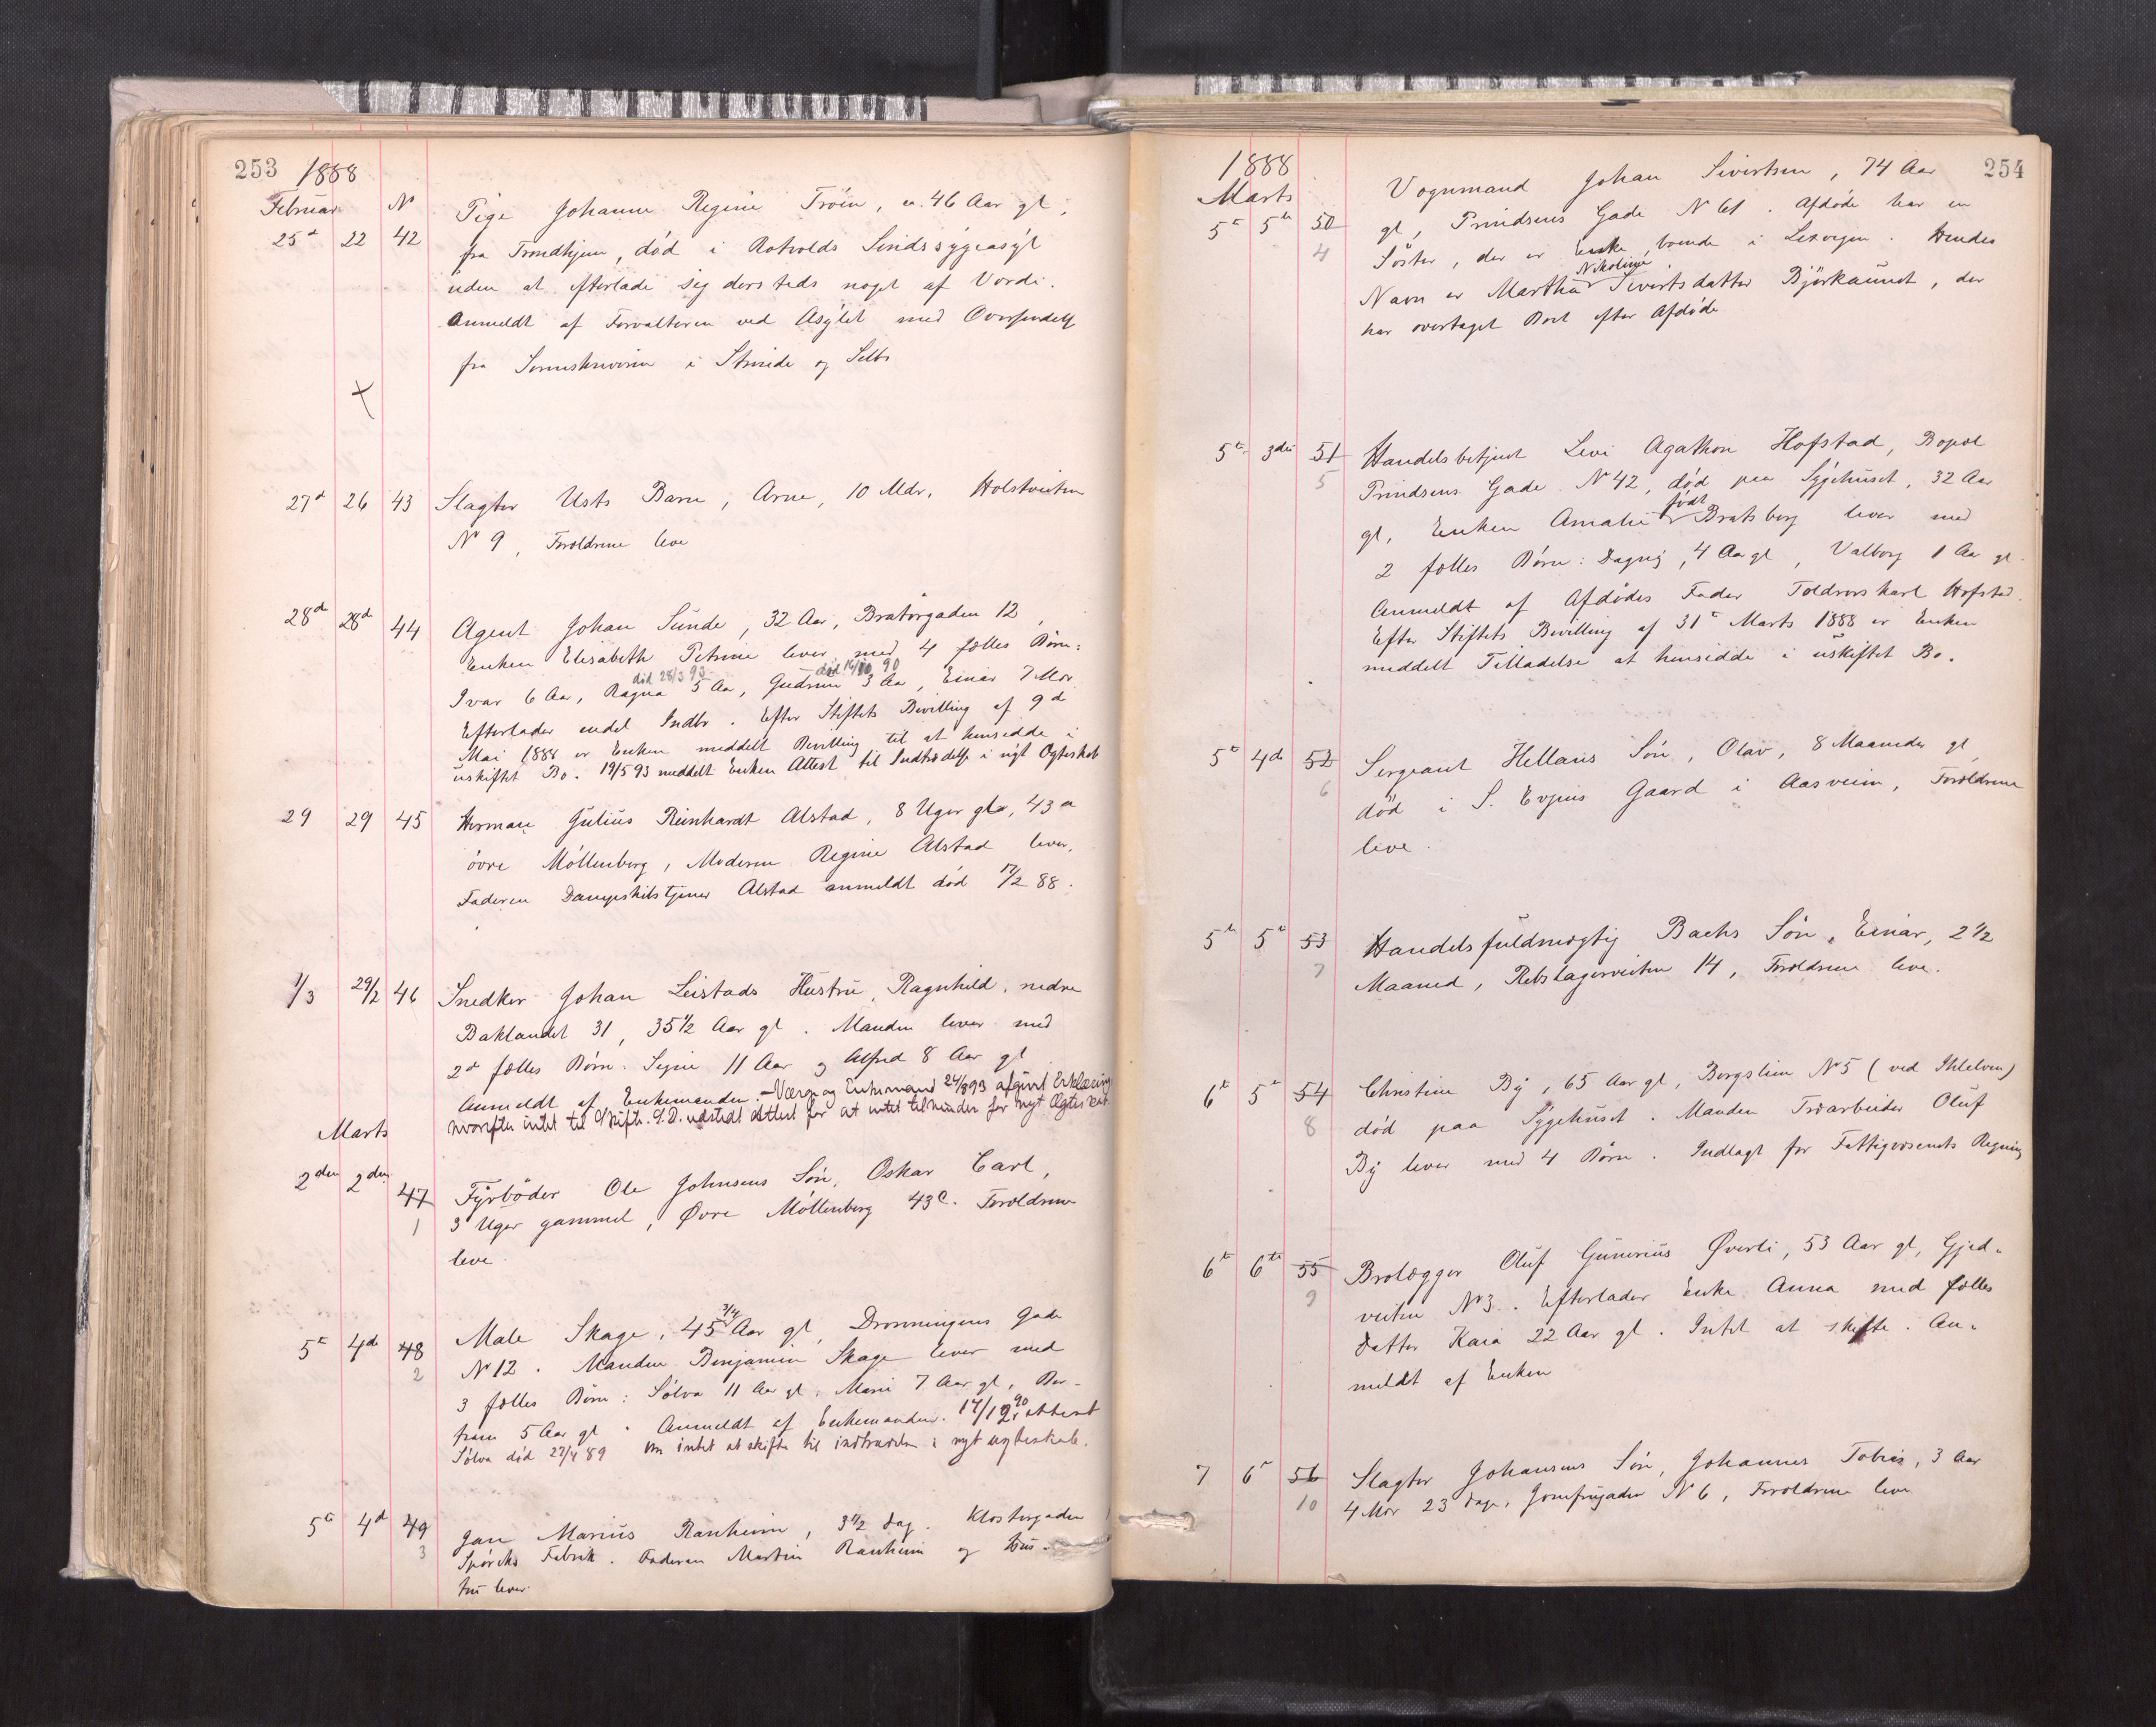 253 1888
Februar N
25d 22 42 Pige Johanne Regine Tröen, c. 46 Aar gl,
fra Trondhjem, död i Rotvolds Sindssygeasyl
uden at efterlade sig dersteds noget af Værdi.
Anmeldt af Forvalteren ved Asylet med Oversendelse
fra Sorenskriveren i Strinde og Selbo
27d 26 43 Slagter Usts Barn, Arne, 10 Mdr. Holstveiten
N 9, Forældrene leve
28d 28d 44 Agent Johan Sunde, 32 Aar, Bratörgaden 12,
Enken Elisabeth Petrine lever med 4 fælles Börn:
död 28/3 90 död 16/10 90
Ivar 6 Aar, Ragna 5 Aar, Gudrun 3 Aar, Einar 7 Mdr
Efterlader endel Indbo. Efter Stiftets Bevilling af 9d
Mai 1888 er Enken meddelt Bevilling til at hensidde i
uskiftet Bo. 19/5 93 meddelt Enken Attest til Indtrædelse i nyt Ægteskab
29 29 45 Herman Julius Reinhardt Alstad, 8 Uger gl, 43 a
övre Möllenberg, Moderen Regine Alstad lever.
Faderen Dampskibstjener Alstad anmeldt död 17/2 88.
1/3 29/2 46 Snedker Johan Leistads Hustru, Ragnhild, nedre
Baklandet 31, 35 1/2 Aar gl. Manden lever med
2 fælles Börn. Signe 11 Aar og Alfred 8 Aar gl
Anmeldt af Enkemanden. - Værge og Enkemand 24/8 93 afgivet Erklæring
hvorefter intet til Skifte. S.D. udstedt Attest for at intet til hinder for nyt Ægteskab
Marts
2den 2den 47 Fyrböder Ole Johnsens Sön, Oskar Carl,
1 3 Uger gammel, Övre Möllenberg 43c. Forældrene
leve
5t 4de 48 Male Skage, 45 3/4 Aar gl, Dronningens Gade
2 N 12. Manden Benjamin Skage lever med
3 fælles Börn: Sölva 11 Aar gl, Marie 7 Aar gl, Ber-
tram 5 Aar gl. Anmeldt af Enkemanden. 17/12 90 attest
Sölva död 27/4 89 om intet at skifte til indtrædelse i nyt ægteskab.
5te 4d 49 Jan Marius Ranheim, 3 1/2 dag. Klostergaden
3 Spörcks Fabrik. Faderen Martin Ranheim og Hus-
tru lever
1888 254
Marts
5t 5te 50 Vognmand Johan Sivertsen, 74 Aar
4 gl, Prindsens Gade N 61. Afdöde har en
Söster, der er Enke, boende i Leksvigen. Hendes
Nikoline
Navn er Martha Sivertsdatter Björkaunet, der
har overtaget Boet efter Afdöde
5te 3die 51 Handelsbetjent Levi Agathon Hofstad, Bopæl
5 Prindsens Gade N 42, död paa Sygehuset, 32 Aar
födt
gl, Enken Amalie Bratsberg lever med
2 fælles Börn: Dagny, 4 Aar gl, Valborg 1 Aar gl.
Anmeldt af Afdödes Fader Toldrorskarl Hofstad.
Efter Stiftets Bevilling af 31t Marts 1888 er Enken
meddelt Tilladelse at hensidde i uskiftet Bo.
5te 4de 52 Sergeant Hellans Sön, Olav, 8 Maaneder gl
6 död i S. Evjens Gaard i Aasveien, Forældrene
leve.
5te 5te 53 Handelsfuldmægtig Bachs Sön, Einar, 2 1/2
7 Maaned, Rebslagerveiten 14, Forældrene leve.
6te 5te 54 Christine By, 65 Aar gl, Bergslien N 5 (ved Ihlelven)
8 död paa Sygehuset. Manden Træarbeider Oluf
By lever med 4 Börn. Indlagt for Fattigvæsenets Regning
6te 6te 55 Brolægger Oluf Gunerius Överli, 53 Aar gl, Gjed-
9 veiten N 3. Efterlader Enke Anna med fælles
Datter Kaia 22 Aar gl. Intet at skifte. An-
meldt af Enken
7 6te 56 Slagter Johansens Sön, Johannes Tobias, 3 Aar
10 4 Mdr 23 dage, Jomfrugaden N 6, Forældrene leve